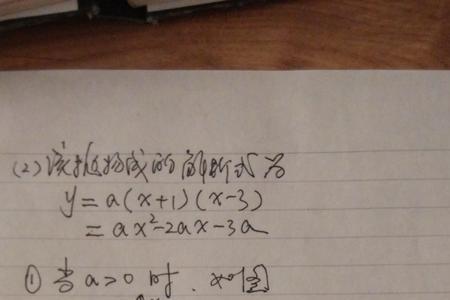 (2)该抛物线的解析式为
y=a(x+1)(x-3)
=ax²-2ax-3a
①当a>0时.如图